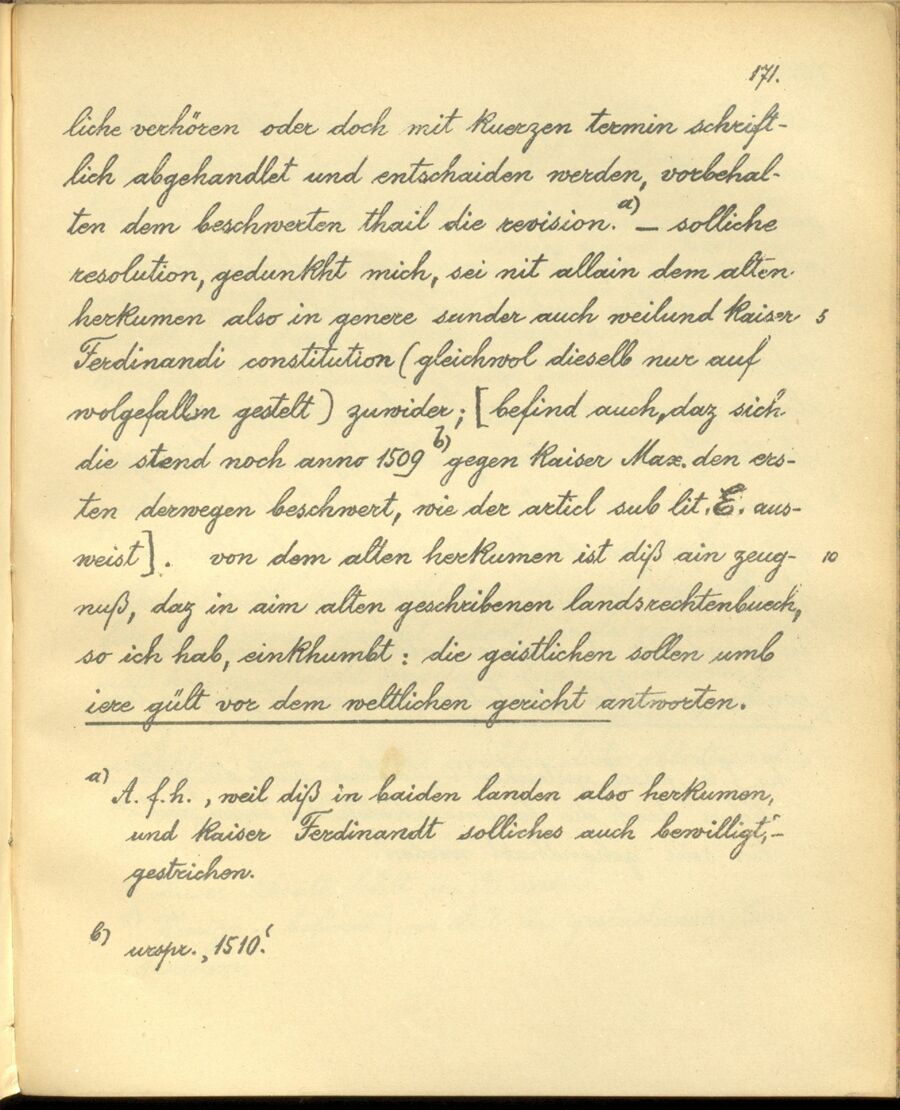 171.
liche verhören oder doch mit kuerzen termin schrift-
lich abgehandlet und entschaiden werden, vorbehal-
ten dem beschwerten thail die revision.a) — solliche
resolution, gedunkht mich, sei nit allain dem alten
herkumen also in genere sunder auch weilund kaiser 5
Ferdinandi constitution (gleichwol dieselb nur auf
wolgefallen gestelt) zuwider; [befind auch, daz sich
die stend noch anno 1509 b) gegen kaiser Max. den ers-
ten derwegen beschwert, wie der articl sub lit. E. aus-
weist]. von dem alten herkumen ist diß ain zeug- 10
nuß, daz in aim alten geschribenen landsrechtenbuech,
so ich hab, einkhumbt: die geistlichen sollen umb
iere gült vor dem weltlichen gericht antworten.
a) A. f. h. ‚weil diß in baiden landen also herkumen,
und kaiser Ferdinandt solliches auch bewilligt,‘ –
gestrichen.
b) urspr. ‚1510.‘